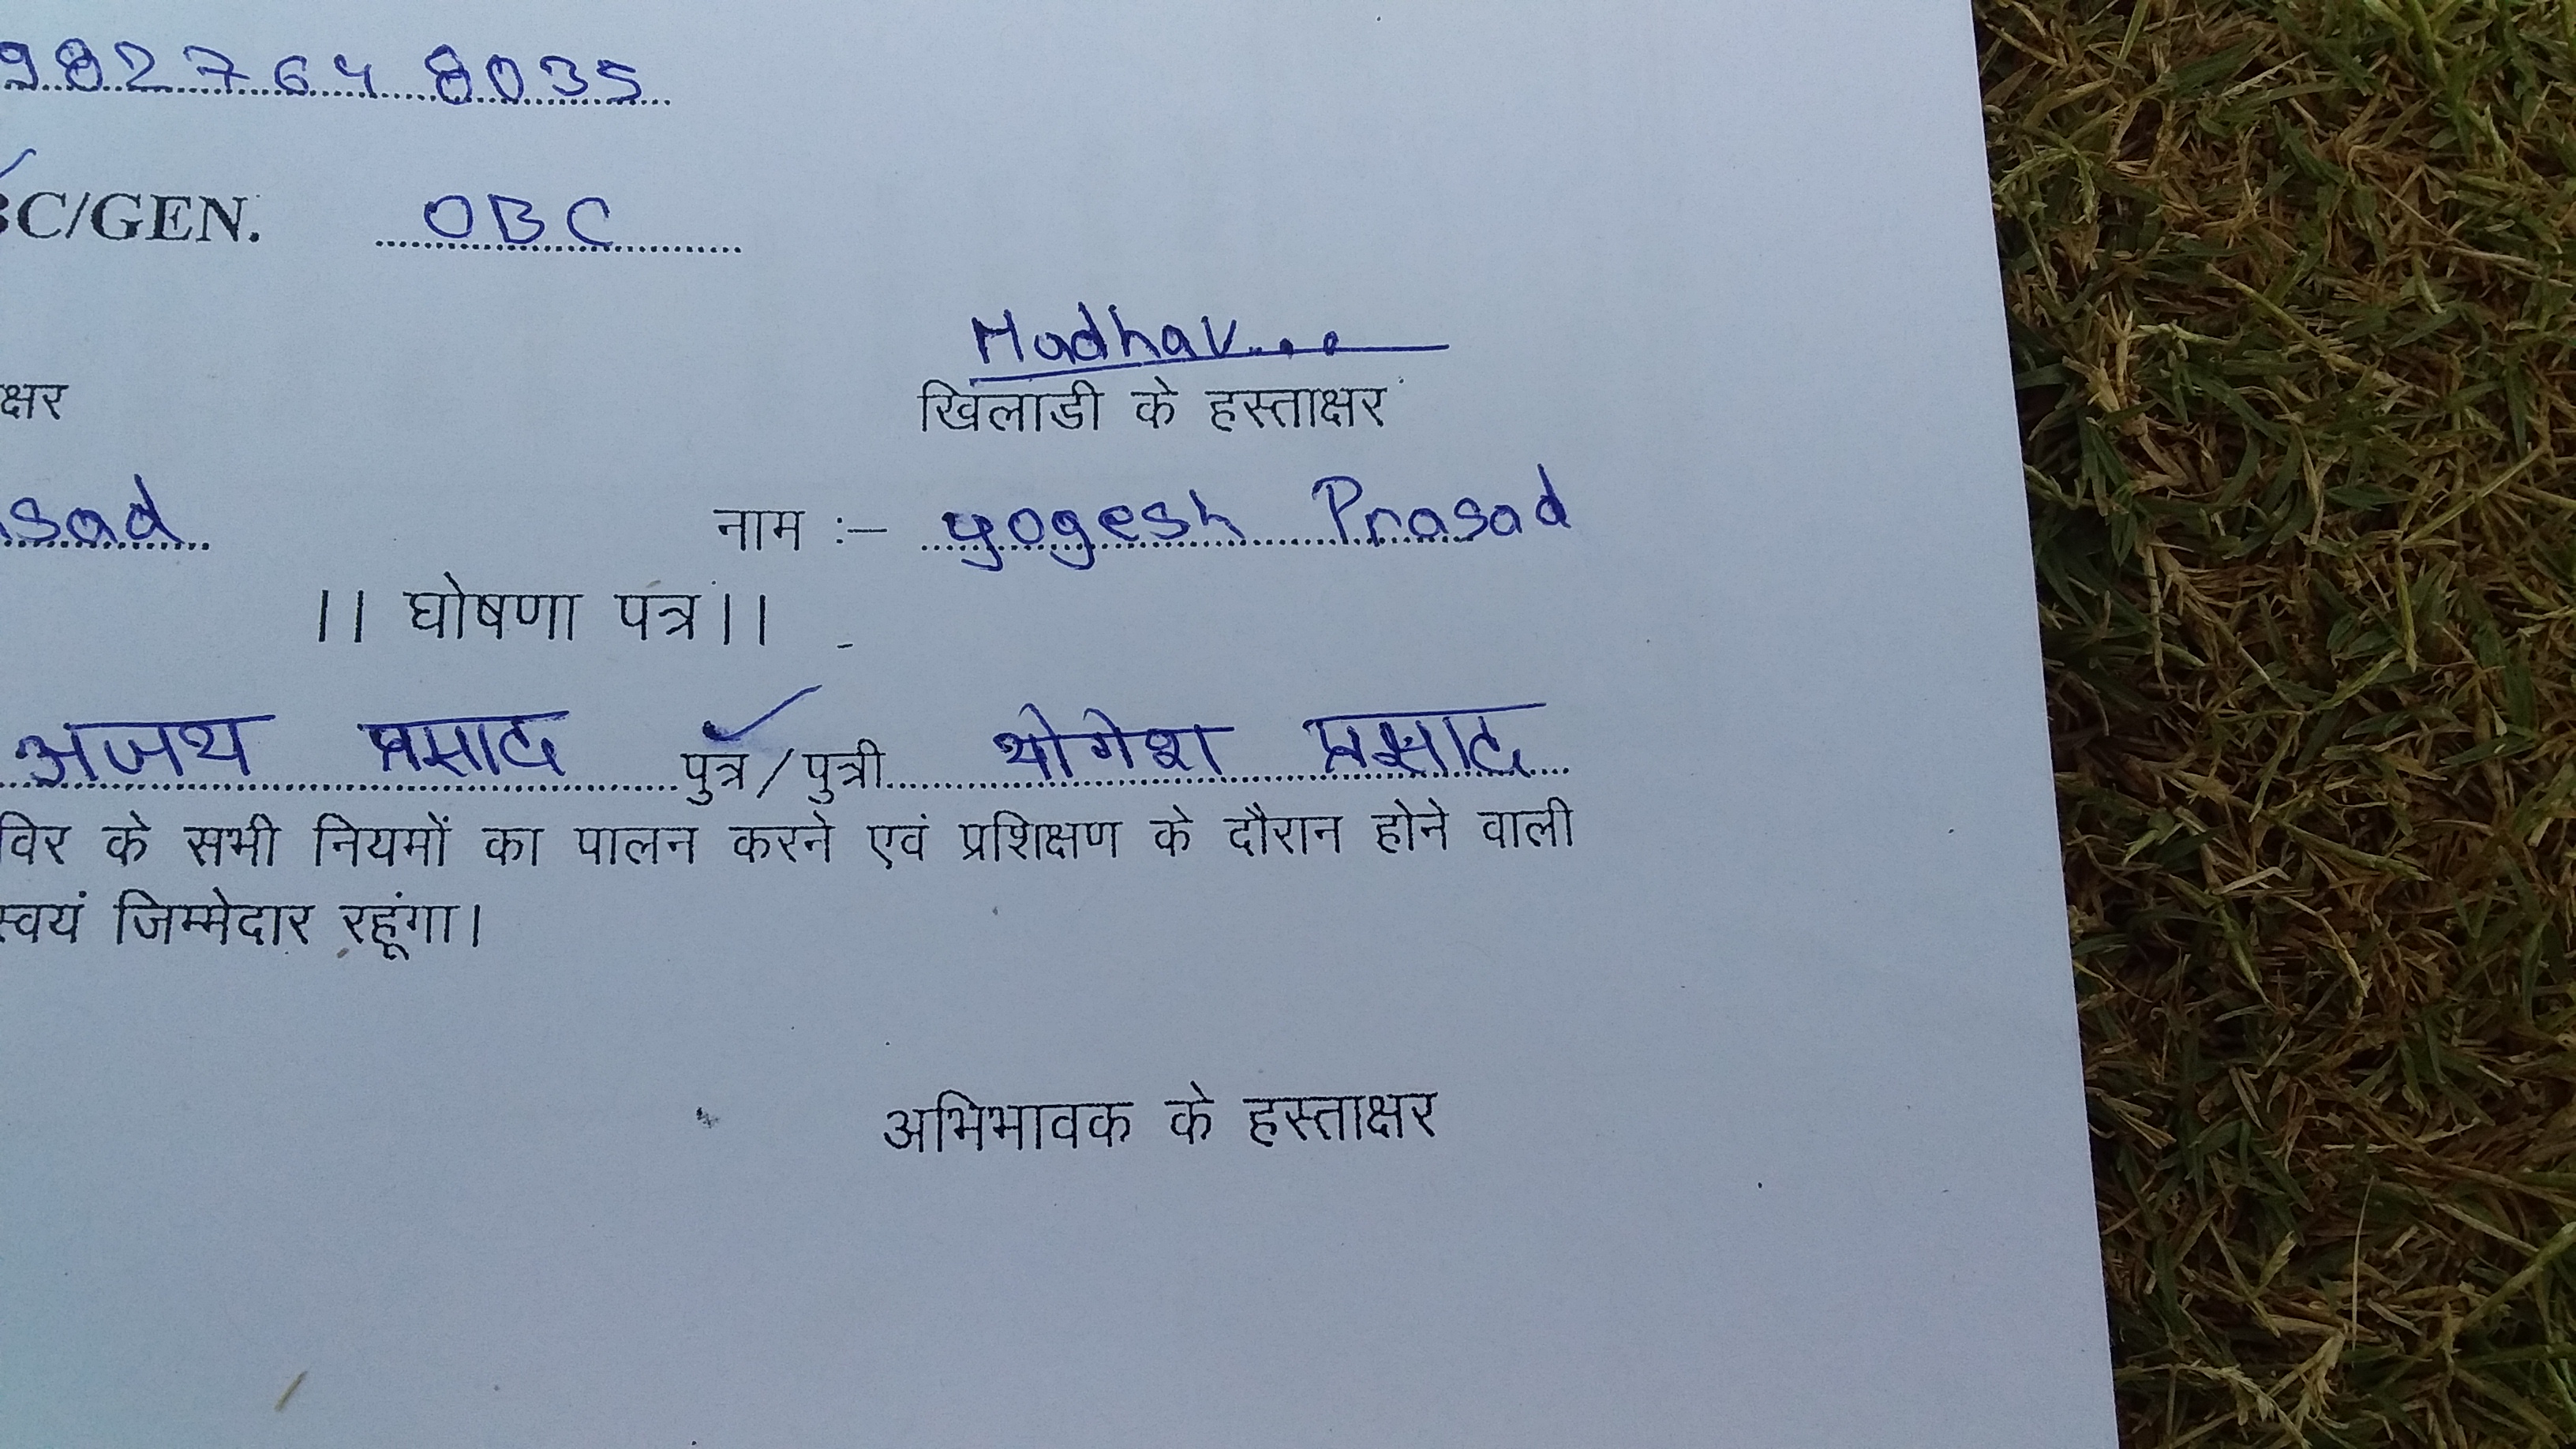 982764 8035
BC/GEN. OBC
Madhav...
क्षर खिलाडी के हस्ताक्षर
sad नाम :– yogesh Prasad
।। घोषणा पत्र।।
अजय प्रसाद पुत्र/पुत्री योगेश प्रसाद
विर के सभी नियमों का पालन करने एवं प्रशिक्षण के दौरान होने वाली
स्वयं जिम्मेदार रहूंगा।
अभिभावक के हस्ताक्षर